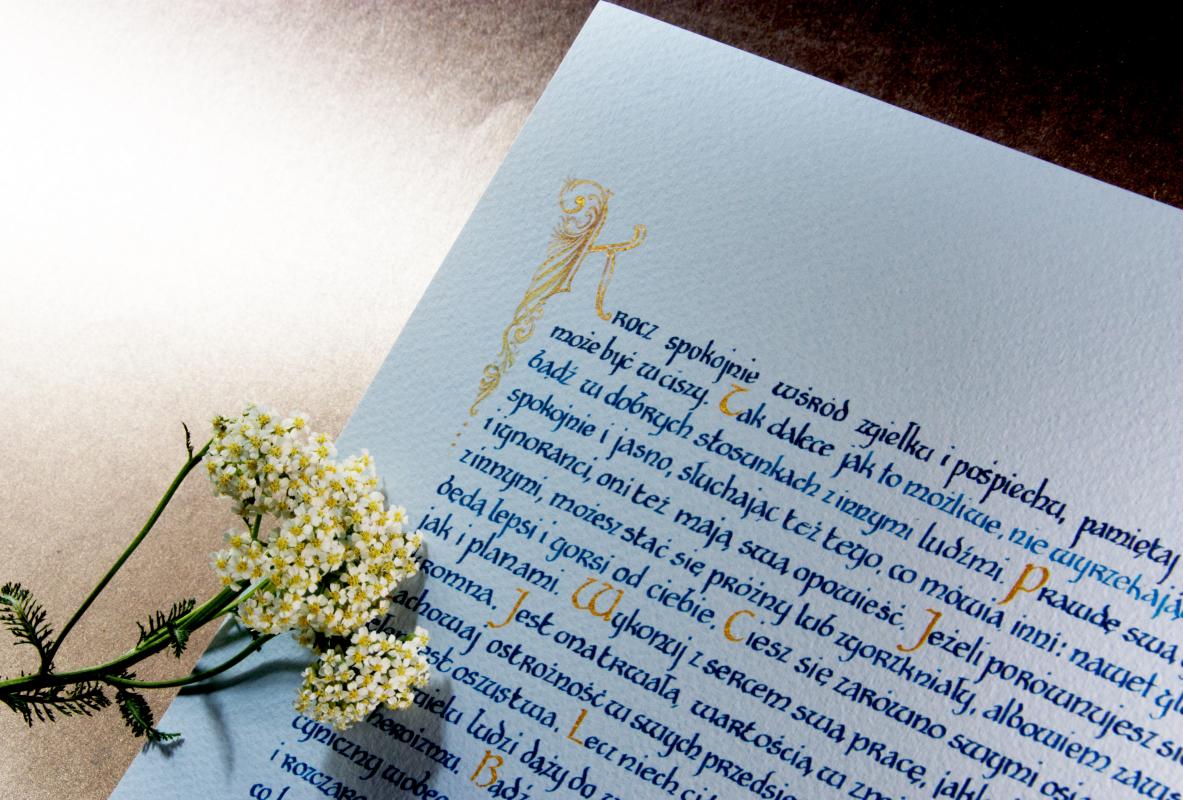 Krocz spokojnie wśród zgiełku i pośpiechu, pamiętaj
może być w ciszy. Tak dalece jak to możliwe, nie wyrzekając
bądź w dobrych stosunkach z innymi ludźmi. Prawdę swą
spokojnie i jasno, słuchając też tego, co mówią inni: nawet gł
i ignoranci, oni też mają swą opowieść. Jeżeli porównujesz się
z innymi, możesz stać się próżny lub zgorzkniały, albowiem zaws
będą lepsi i gorsi od ciebie. Ciesz się zarówno swymi osią
jak i planami. Wykonuj z sercem swą pracę, jakk
romna. Jest ona trwałą wartością w zmi
achowaj ostrożność w swych przedsię
est oszustwa. Lecz niech ci
wielu ludzi dąży do w
heroizmu. Bądź
cyniczny wobec
i rozczaro
co